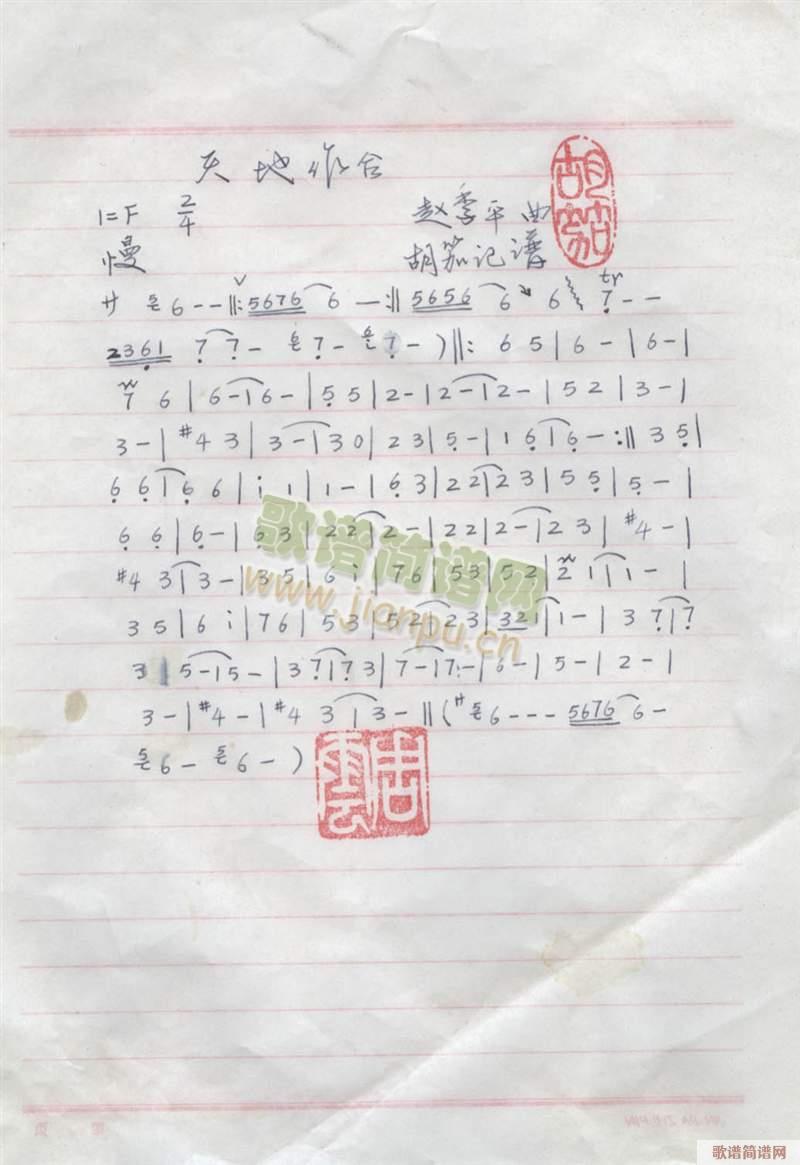 天地作合
1=F 2/4 赵季平 曲
慢 胡笳记谱
胡笳
サ 56 - - ‖: 5676 6 — :‖ 5656 6 6 7 - - tr
2361 7 7 - 67 - 67 - ) ‖: 6 5 | 6 - | 6 - |
7 6 | 6 - | 6 - | 5 5 | 2 - | 2 - | 2 - | 5 2 | 3 - |
3 - | #4 3 | 3 - | 3 0 | 2 3 | 5 - | 1 6 | 6 - :‖ 3 5 |
6 6 | 6 6 | i 1 | 1 - | 6 3 | 2 2 | 2 3 | 5 5 | 5 - |
6 6 | 6 - | 6 3 | 2 2 | 2 - | 2 2 | 2 - | 2 3 | #4 - |
#4 3 | 3 - | 3 5 | 6 i | 7 6 | 5 3 5 2 | 2 1 | 1 - |
3 5 | 6 i | 7 6 | 5 3 | 5 2 | 2 3 | 3 2 1 | 1 - | 3 7 | 7
3 | 5 - | 5 - | 3 7 | 7 3 | 7 - | 7 - | 6 - | 5 - | 2 - |
3 - | #4 - | #4 3 | 3 - ‖ ( サ 56 - - - 5676 6 -
56 - 56 - )
歌谱简谱网
www.jianpu.cn
歌谱简谱网